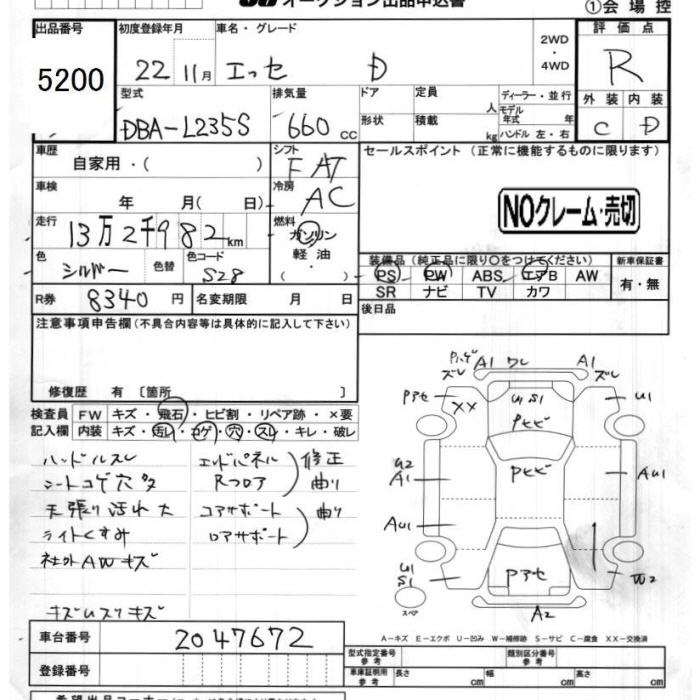 オークション出品申込書
①会場控
出品番号
5200
初度登録年月
22 11月
車名・グレード
エッセ D
2WD
・
4WD
評価点
R
外装 内装
C D
型式
DBA-L235S
排気量
660 cc
ドア
形状
定員
人
積載
kg
ディーラー・並行
モデル
年式 年
ハンドル 左・右
車歴
自家用・( )
シフト
FAT
セールスポイント (正常に機能するものに限ります)
NOクレーム・売切
車検
年 月( 日)
冷房
AC
走行
13万2千982km
燃料
ガソリン
軽油
( ・ )
色
シルバー
色替
色コード
S28
装備品 (純正品に限り○をつけてください)
新車保証書
PS PW ABS エアB AW
SR ナビ TV カワ
有・無
R券
8340円
名変期限 月 日
後日品
注意事項申告欄(不具合内容等は具体的に記入して下さい)
修復歴 有 [箇所 ]
検査員
記入欄
FW キズ・飛石・ヒビ割・リペア跡・×要
内装 キズ・汚レ・コゲ・穴・スレ・キレ・破レ
ハンドルスレ
シートコゲ穴多
天張り汚れ大
ライトくすみ
社外AWキズ
エンドパネル
Rフロア
修正
曲り
コアサポート
ロアサポート
曲り
A1 ワレ A1
ズレ ズレ
XX
U1 S1
U1
Pヒビ
Pヒビ
U2
A1
AU1
AU1
U1
S1
スペア
Pアセ
W2
A2
A-キズ E-エクボ U-凹み W-補修跡 S-サビ C-腐食 XX-交換済
車台番号
2047672
登録番号
型式指定番号
参考
類別区分番号
参考
車庫証明用
参考
長さ cm 幅 cm 高さ cm